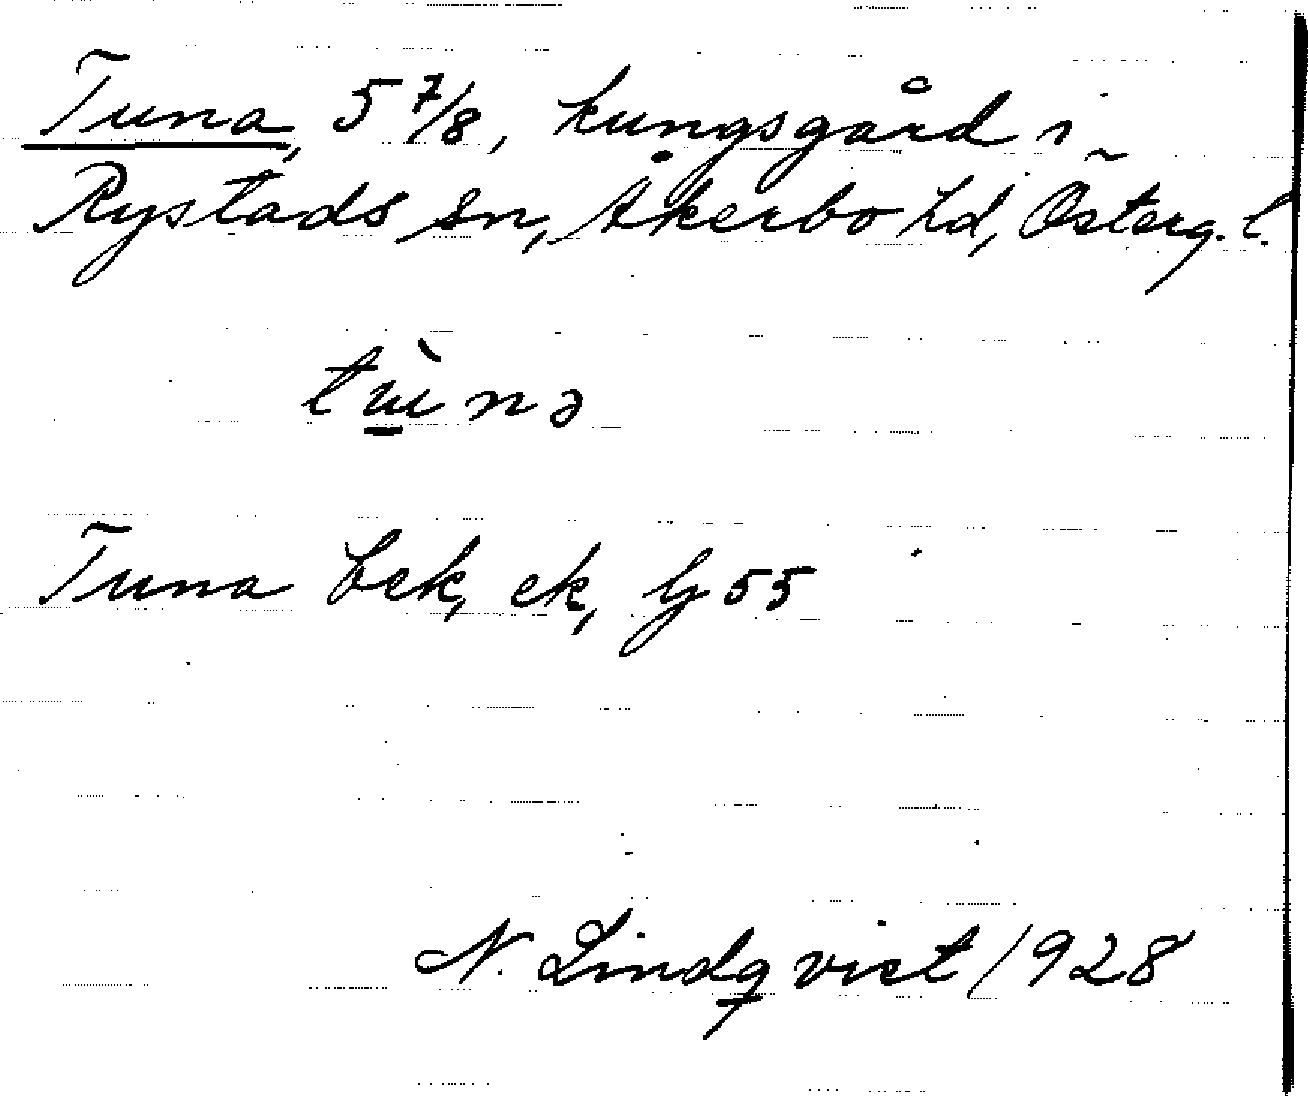 Tuna, 5 7/8, kungsgård i
Rystads sn, Åkerbo hd, Österg. l.
tɯ̀nə
Tuna bek, ek, Gj 55
N. Lindqvist 1928